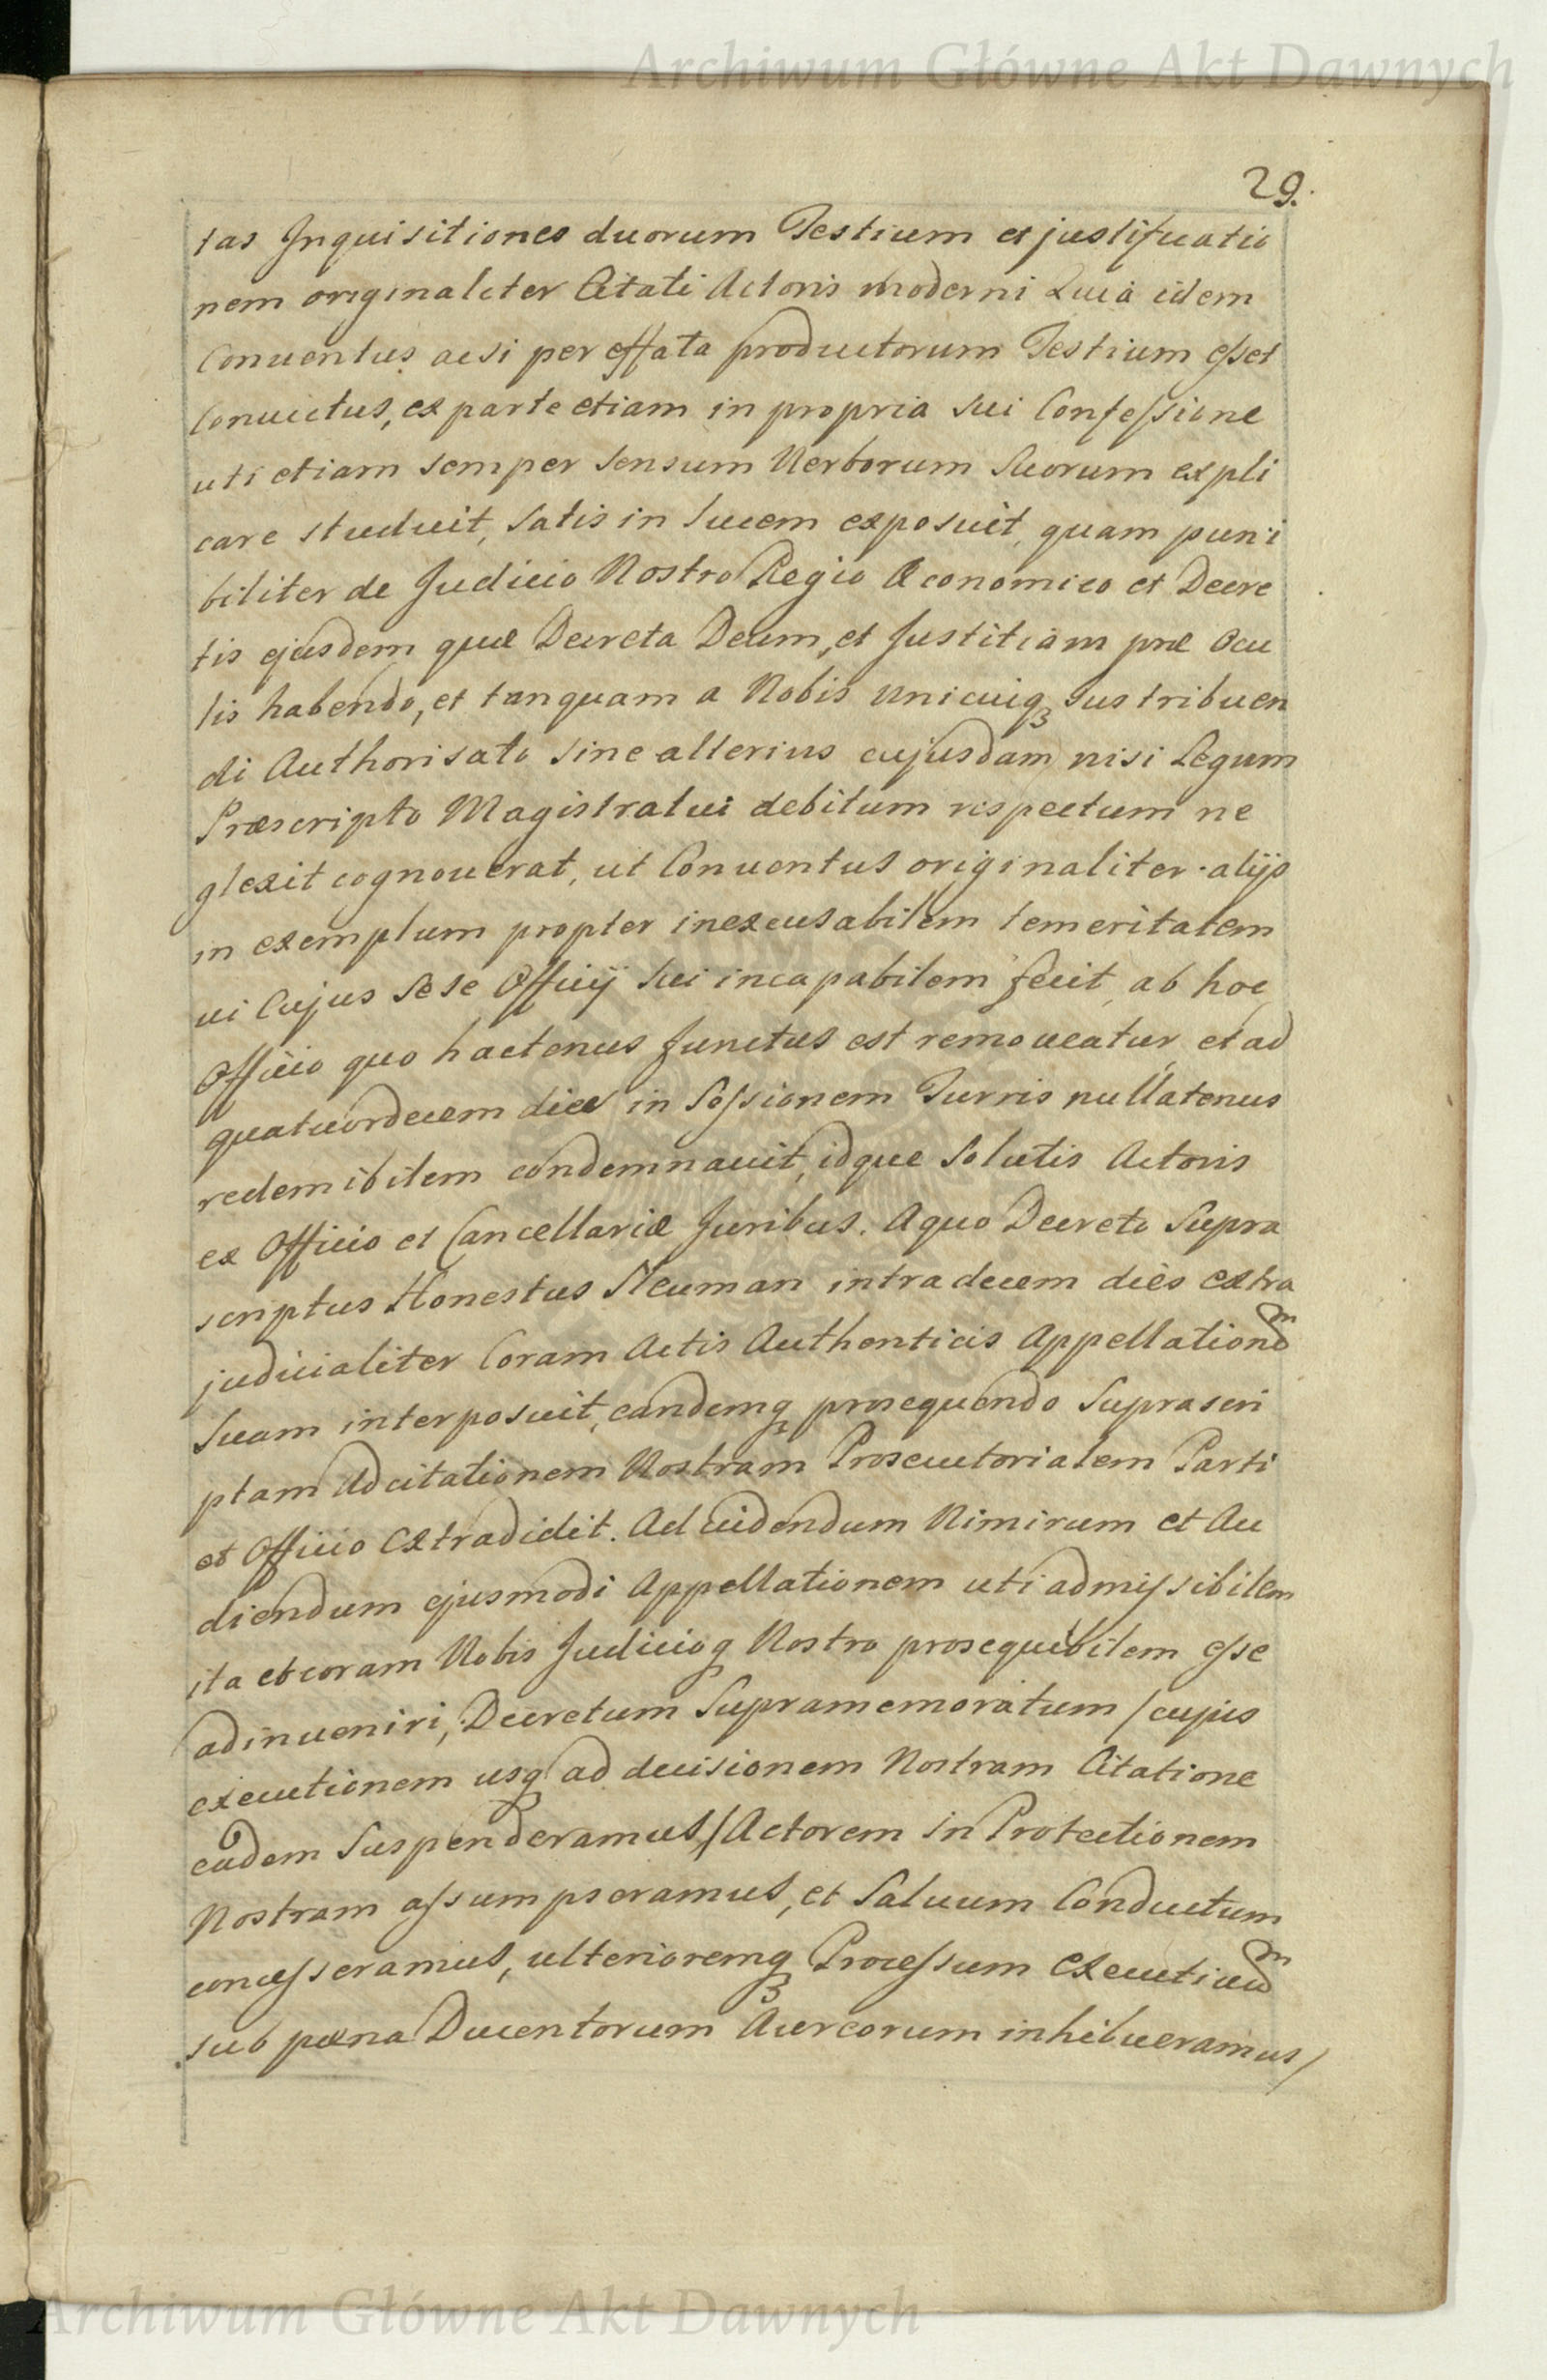 Archiwum Główne Akt Dawnych
29.
tas Inquisitiones duorum Testium et justificatio
nem originaliter Citati Actoris moderni Quia idem
Conventus acsi per effata productorum Testium esset
Convictus, ex parte etiam in propria sui Confessione
uti etiam semper sensum Verborum Suorum expli
care studuit, satis in lucem exposuit, quam puni
biliter de Judicio Nostro Regio Œconomico et Decre
tis ejusdem quæ Decreta Deum, et Justitiam præ Ocu
lis habendo, et tanquam a Nobis unicuiq Jus tribuen
di Authorisato sine alterius cujusdam nisi Legum
Præscripto Magistratui debitum respectum ne
glexit cognoverat, ut Conventus originaliter alijs
in exemplum propter inexcusabilem temeritatem
vi Cujus Sese Officij sui incapabilem fecit, ab hoc
Officio quo hactenus functus est removeatur, et ad
quatuordecem dies in Sessionem Turris nullatenus
redemibilem condemnavit, idque Solutis Actoris
ex Officio et Cancellariæ Juribus. A quo Decreto Supra
scriptus Honestus Neuman intra decem dies extra
judicialiter Coram Actis Authenticis Appellationem
Suam interposuit, eandemq prosequendo Suprascri
ptam Adcitationem Nostram Prosecutorialem Parti
et Officio Extradidit. Ad videndum Nimirum et Au
diendum ejusmodi Appellationem uti admissibilem
ita et coram Nobis Judicioq Nostro prosequibilem esse
adinveniri, Decretum Supramemoratum /cujus
executionem usq ad decisionem Nostram Citatione
eadem Suspenderamus,/ Actorem in Protectionem
Nostram assumpseramus, et Salvum Conductum
concesseramus, ulterioremq Processum Executivum
sub pœna Ducentorum Aureorum inhibueramus/
Archiwum Główne Akt Dawnych